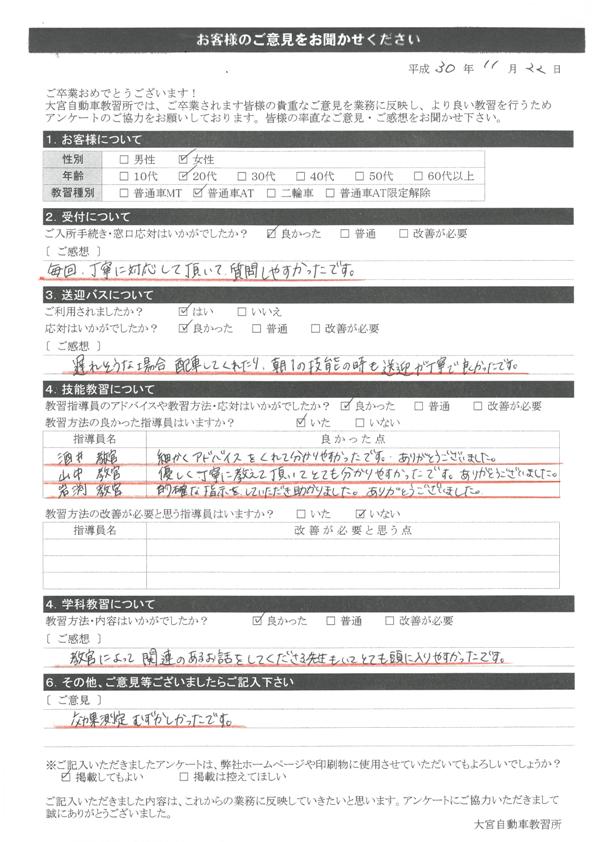 お客様のご意見をお聞かせください
平成 30 年 11 月 22 日
ご卒業おめでとうございます！
大宮自動車教習所では、ご卒業されます皆様の貴重なご意見を業務に反映し、より良い教習を行うため
アンケートのご協力をお願いしております。皆様の率直なご意見・ご感想をお聞かせ下さい。
1. お客様について
性別 □ 男性 ☑ 女性
年齢 □ 10代 ☑ 20代 □ 30代 □ 40代 □ 50代 □ 60代以上
教習種別 □ 普通車MT ☑ 普通車AT □ 二輪車 □ 普通車AT限定解除
2. 受付について
ご入所手続き・窓口応対はいかがでしたか？ ☑ 良かった □ 普通 □ 改善が必要
〔 ご感想 〕
毎回、丁寧に対応して頂いて、質問しやすかったです。
3. 送迎バスについて
ご利用されましたか？ ☑ はい □ いいえ
応対はいかがでしたか？ ☑ 良かった □ 普通 □ 改善が必要
〔 ご感想 〕
遅れそうな場合 配車してくれたり、朝1の技能の時も送迎が丁寧で良かったです。
4. 技能教習について
教習指導員のアドバイスや教習方法・応対はいかがでしたか？ ☑ 良かった □ 普通 □ 改善が必要
教習方法の良かった指導員はいますか？ ☑ いた □ いない
指導員名 良かった点
酒井 教官 細かくアドバイスをくれて分かりやすかったです。ありがとうございました。
山中 教官 優しく丁寧に教えて頂いてとても分かりやすかったです。ありがとうございました。
岩渕 教官 的確な指示をしていただき助かりました。ありがとうございました。
教習方法の改善が必要と思う指導員はいますか？ □ いた ☑ いない
指導員名 改善が必要と思う点
4. 学科教習について
教習方法・内容はいかがでしたか？ ☑ 良かった □ 普通 □ 改善が必要
〔 ご感想 〕
教官によって 関連のあるお話をしてくださる先生もいてとても頭に入りやすかったです。
6. その他、ご意見等ございましたらご記入下さい
〔 ご意見 〕
効果測定むずかしかったです。
※ご記入いただきましたアンケートは、弊社ホームページや印刷物に使用させていただいてもよろしいでしょうか？
☑ 掲載してもよい □ 掲載は控えてほしい
ご記入いただきました内容は、これからの業務に反映していきたいと思います。アンケートにご協力いただきまして
誠にありがとうございました。
大宮自動車教習所